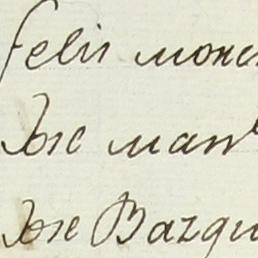 felis mone
Jose man^l
Jose Bazqu